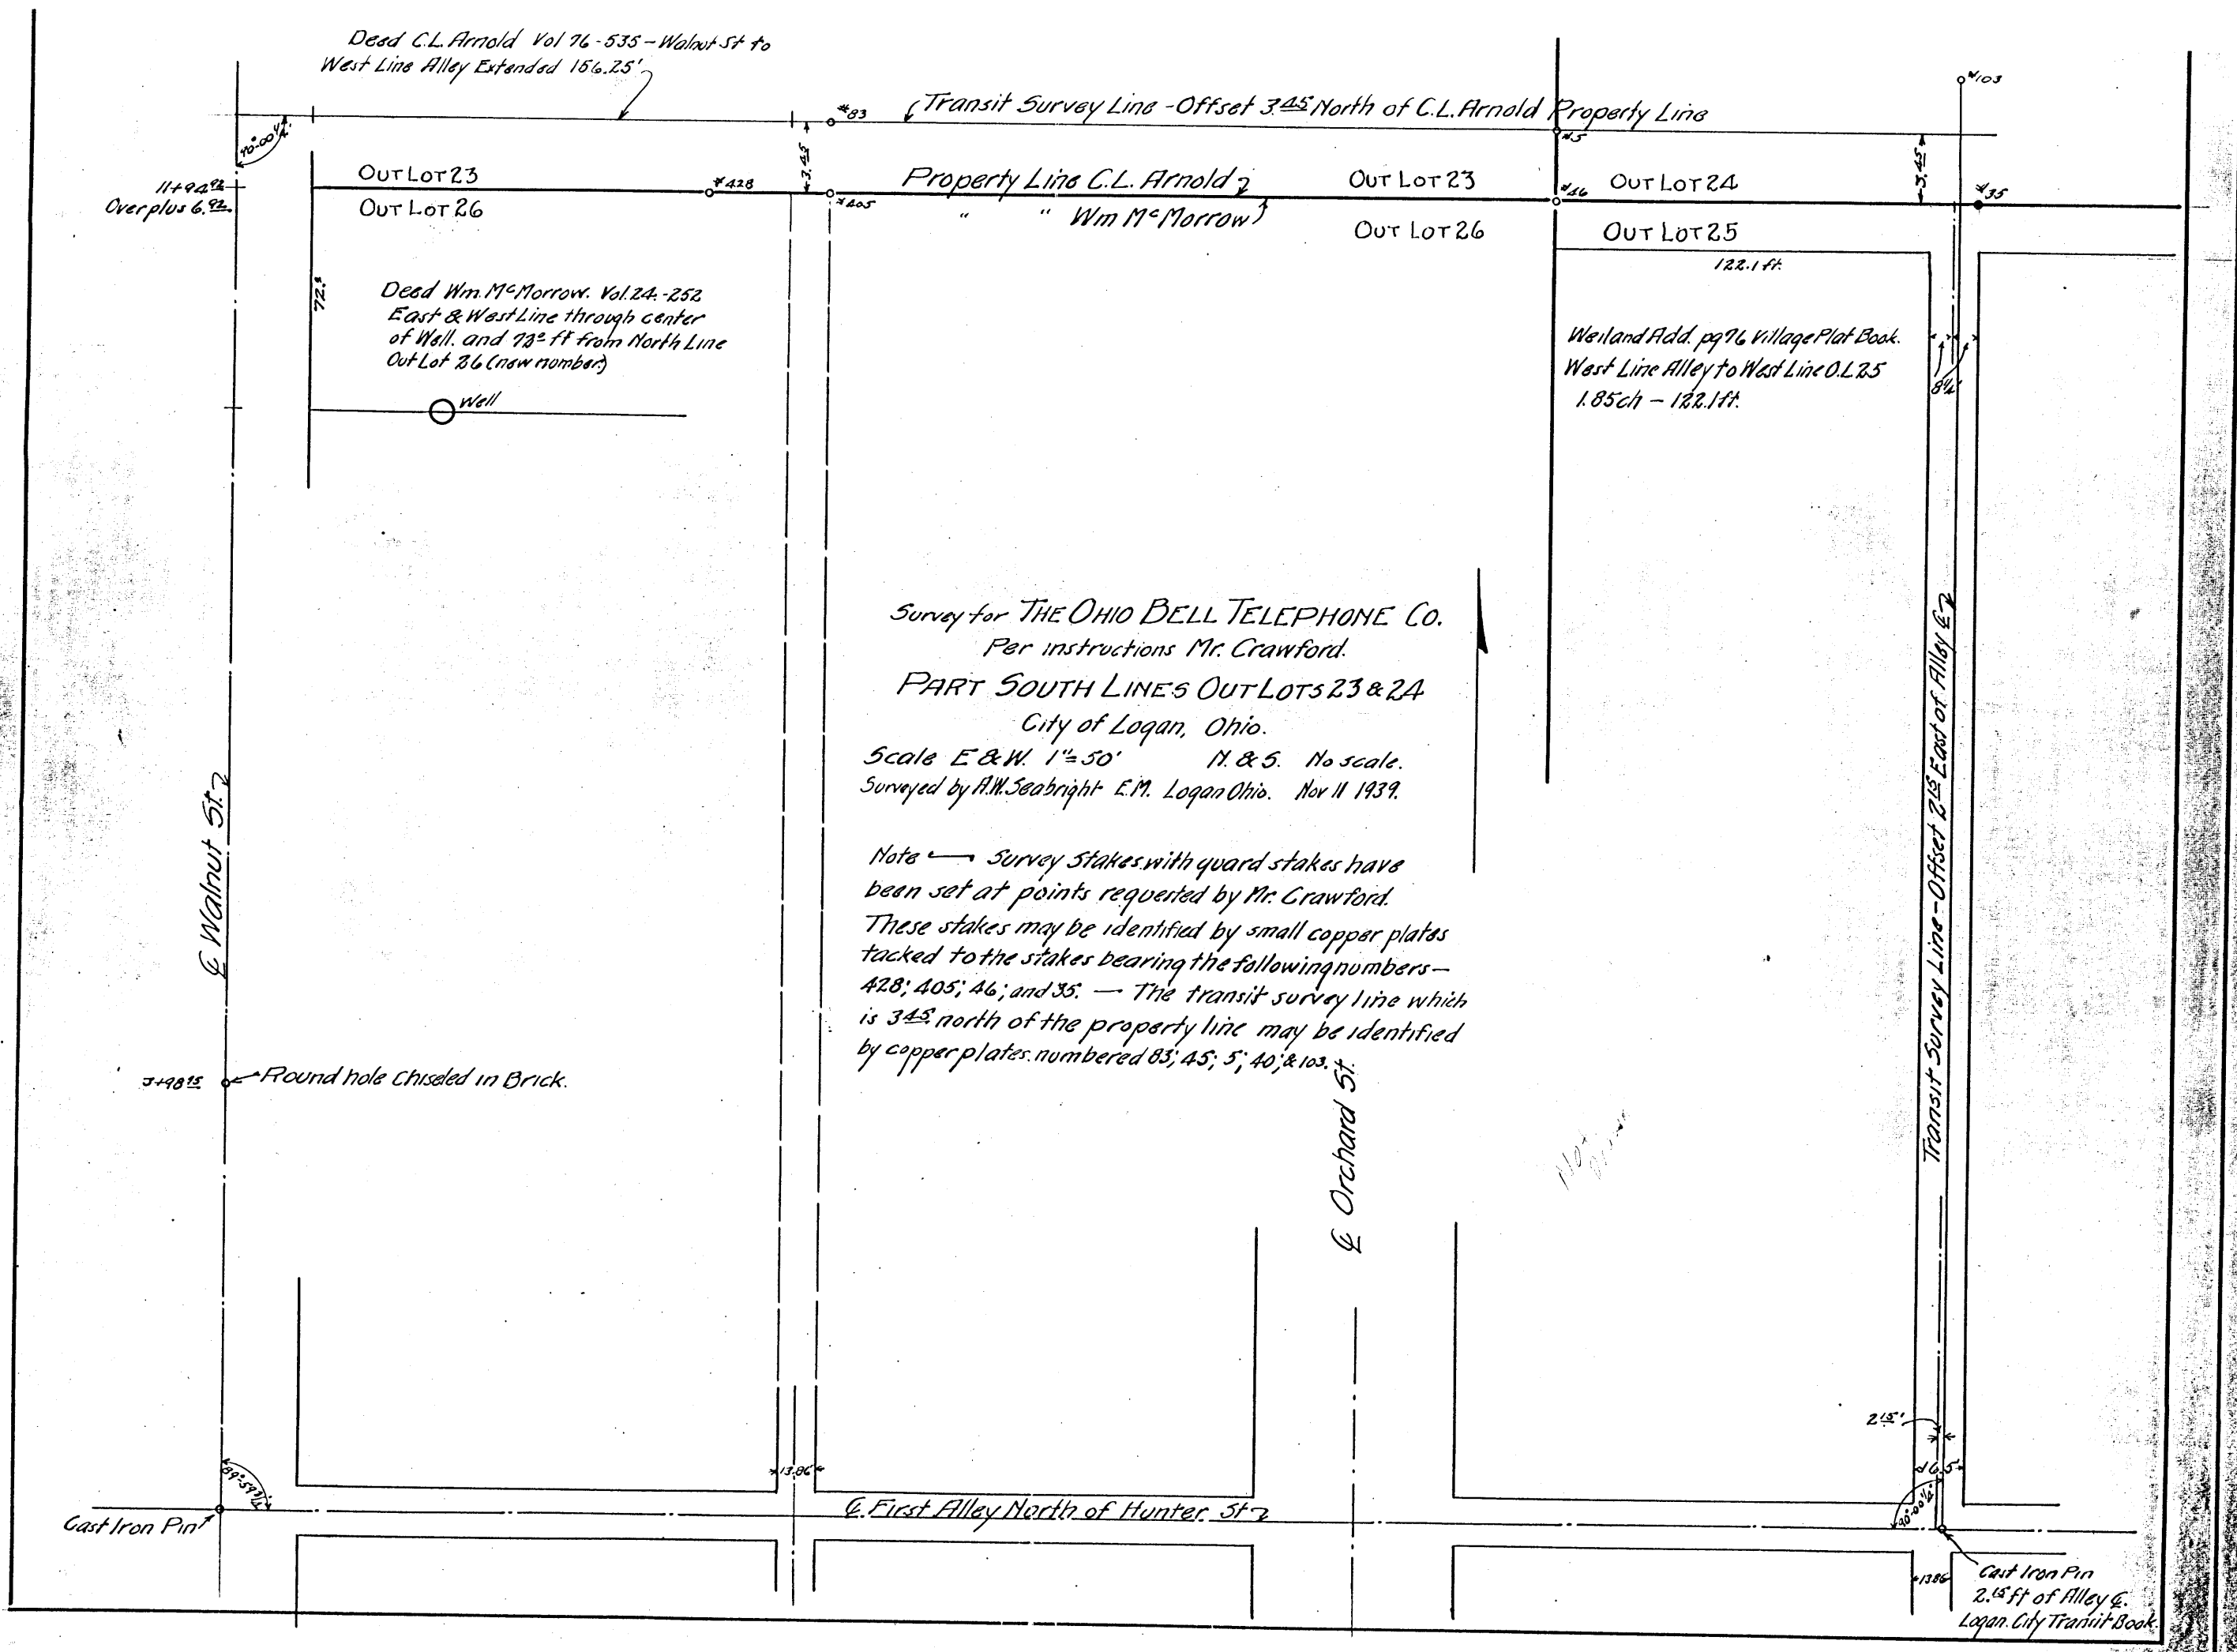 Deed C.L. Arnold Vol 76-535 - Walnut St to
West Line Alley Extended 156.25'
#103
#83
Transit Survey Line - Offset 3.45 North of C.L. Arnold Property Line
#5
90°-00½'
3.45
3.45
11+94.92
Overplus 6.92
OUT LOT 23
#428
Property Line C.L. Arnold
OUT LOT 23
#46
OUT LOT 24
#35
OUT LOT 26
#405
" " Wm McMorrow
OUT LOT 26
OUT LOT 25
122.1 ft.
72.5
Deed Wm. McMorrow. Vol. 24.-252
East & West Line through center
of Well. and 72.5 ft from North Line
Out Lot 26 (new number)
Well
Weiland Add. pg 76 Village Plat Book.
West Line Alley to West Line O.L 25
1.85 ch - 122.1 ft.
8¼
Survey for THE OHIO BELL TELEPHONE CO.
Per instructions Mr. Crawford.
PART SOUTH LINES OUT LOTS 23 & 24
City of Logan, Ohio.
Scale E & W. 1"=50' N. & S. No scale.
Surveyed by A.W. Seabright E.M. Logan Ohio. Nov 11 1939.
Note — Survey Stakes with guard stakes have
been set at points requested by Mr. Crawford.
These stakes may be identified by small copper plates
tacked to the stakes bearing the following numbers—
428; 405; 46; and 35. — The transit survey line which
is 3.45 north of the property line may be identified
by copper plates. numbered 83; 45; 5; 40; & 103.
℄ Walnut St.
Transit Survey Line - Offset 2.15 East of Alley ℄
3+98.15
Round hole Chiseled in Brick.
℄ Orchard St.
Not
2.15'
89°-59½'
13.86
16.5
90°-00½'
Cast Iron Pin
℄ First Alley North of Hunter St
13.86
Cast Iron Pin
2.15 ft of Alley ℄.
Logan. City Transit Book.